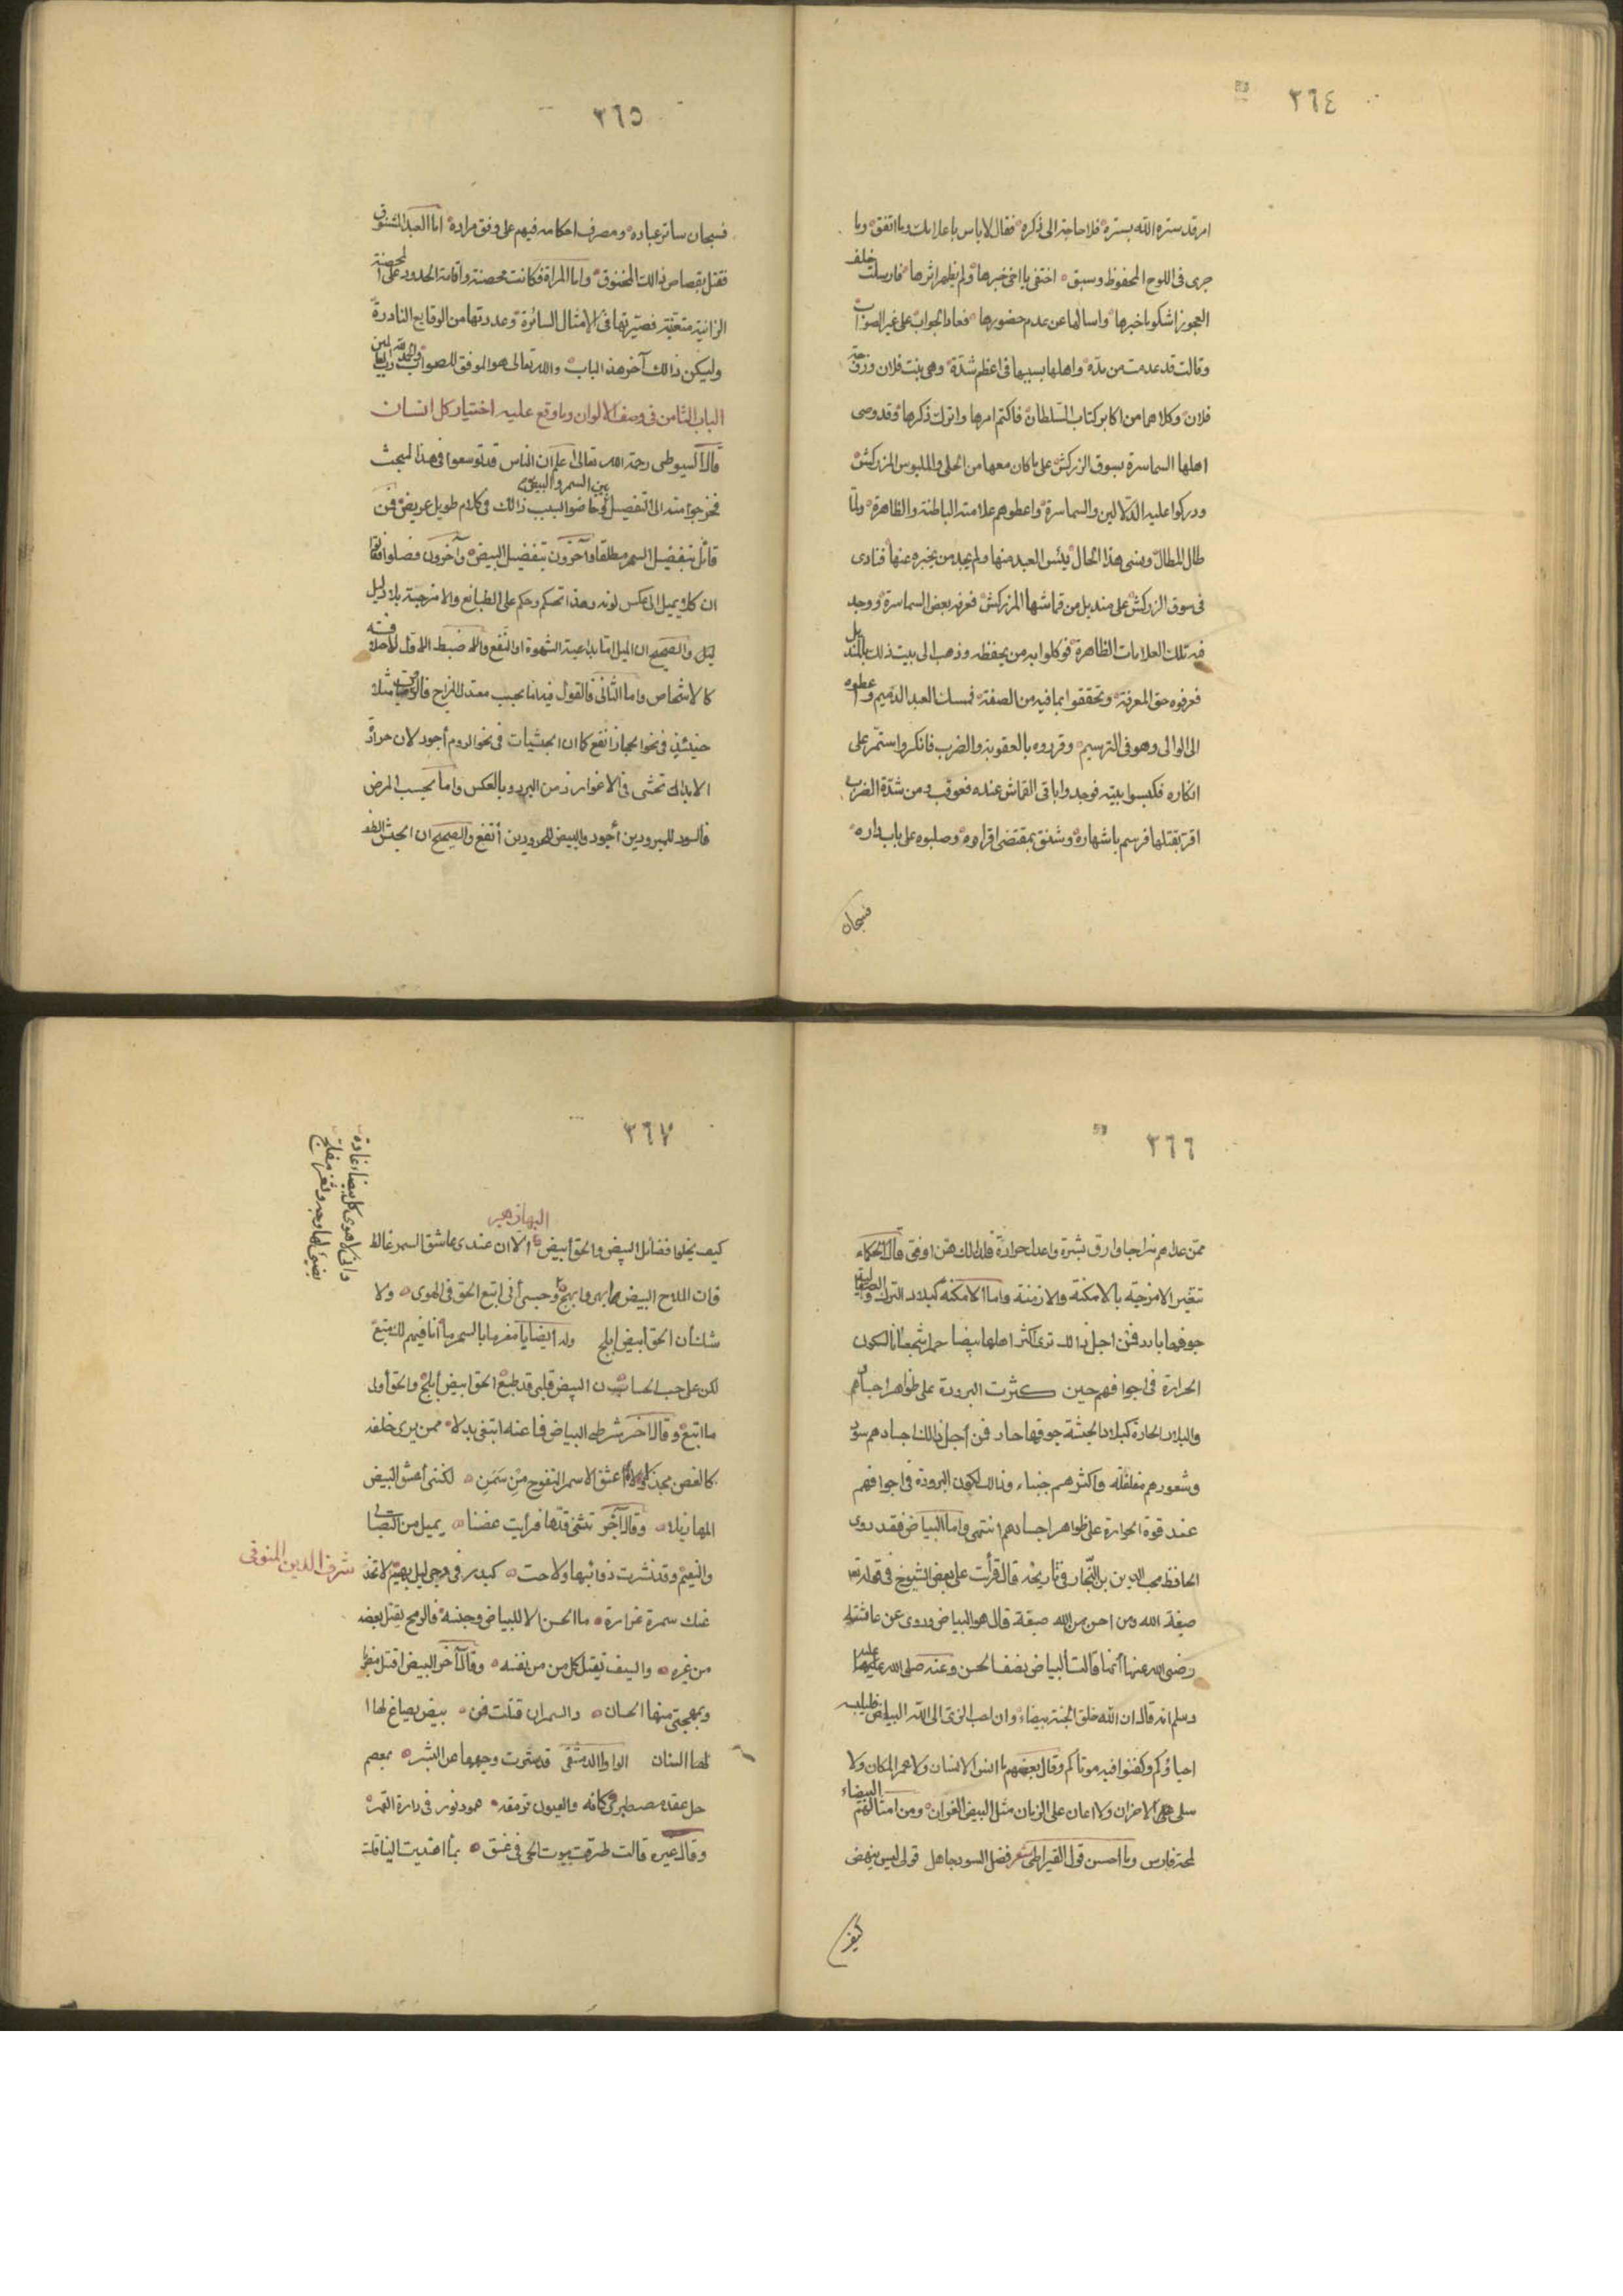 ٣٦٤
امر قد ستره الله بستره فلا حاجة الى ذكره فقال لا باس باعلامك وما اتفق وما
جرى فى اللوح المحفوظ وسبق اختفى يا اخى خبرها ولم يظهر اثرها فارسلت خلف
العجوز اشكو ما خبرها واسالها عن عدم حضورها فعاد الجواب على غير الصواب
وقالت قد عدمت من مدة واهلها بسببها فى اعظم شدة وهى بنت فلان وزوجة
فلان وكلاهما من اكابر كتاب السلطان فاكتم امرها واترك ذكرها وقد وصى
اهلها السماسرة بسوق الزركش على ما كان معها من الحلى والملبوس المزركش
ودركوا عليه الدلالين والسماسرة واعطوهم علامته الباطنة والظاهرة ولما
طال المطال ومضى هذا الحال يئس العبد منها ولم يجد من يخبره عنها فنادى
فى سوق الزركش على منديل من قماشها المزركش فعرفه بعض السماسرة ووجد
فيه تلك العلامات الظاهرة فوكلوا به من يحفظه وذهب الى بيت ذلك بالمنديل
فعرفوه حق المعرفة وتحققوا بما فيه من الصفة فمسك العبد الدميم واعطوه
الى الوالى وهو فى الترسيم وقرروه بالعقوبة والضرب فانكر واستمر على
انكاره فكبسوا بيته فوجدوا باقى القماش عنده فعوقب ومن شدة الضرب
اقر بقتلها فرسم باشهاره وشنق بمقتضى اقراره وصلبوه على باب داره
فسبحان
٣٦٥
فسبحان ساتر عباده ومصرف احكامه فيهم على وفق مراده اما العبد المشنوق
فقتل بقصاص ذالك المخنوق واما المراة فكانت محصنة واقامة الحدود على المحصنة
الزانية متعينة فصيرتها فى الامثال السائرة وعددتها من الوقايع النادرة
وليكن ذالك آخر هذ الباب والله تعالى هو الموفق للصواب والحمد لله رب العالمين
الباب الثامن فى وصف الالوان وما وقع عليه اختيار كل انسان
قال السيوطى رحمة الله تعالى اعلم ان الناس قد توسعوا فى هذا المبحث
فخرجوا منه الى التفصيل بين السمر والبيض وخاضوا لسبب ذالك فى كلام طويل عريض فمن
قائل بتفضيل السمر مطلقا وآخرون بتفضيل البيض وآخرون فصلوا فقالوا
ان كلا يميل الى عكس لونه وهذا تحكم وحكم على الطبائع والامزجة بلا دليل
والصحيح ان الميل اما بداعية الشهوة او النفع ولا ضبط الاول لاختلافه
كالاشخاص واما الثانى فالقول فيه اما بحسب معتدل المزاج فالروميات مثلا
حينئذ فى نحو الحجاز انفع كما ان الحبشيات فى نحو الروم أجود لان حرارة
الابدان تختبى فى الاغوار زمن البرد وبالعكس واما بحسب المرض
فالسود للمبرودين أجود والبيض للمحرورين أنفع والصحيح ان الحبش الطف
٣٦٦
ممن عداهم مزاجا وارق بشرة واعدل حرارة فلذالك هن اوفق قال الحكماء
تتغير الامزجة بالامكنة والازمنة واما الامكنة كبلاد الترك والصقالبة
جوفها بارد فمن اجل ذالك ترى اكثر اهلها بيضا حمرا شجعانا لكون
الحرارة فى اجوافهم حين كثرت البرودة على ظواهر اجسادهم
والبلاد الحارة كبلاد الحبشة جوفها حار فمن أجل ذالك اجسادهم سود
وشعورهم مفلفلة واكثرهم جبناء وذالك لكون البرودة فى اجوافهم
عند قوة الحرارة على ظواهر اجسادهم انتهى واما البياض فقد روى
الحافظ محب الدين بن النجار فى تاريخه قال قرأت على بعض الشيوخ فى قوله تعالى
صبغة الله ومن احسن من الله صبغة قال هو البياض وروى عن عائشة
رضى الله عنها أنها قالت البياض نصف الحسن وعنه صلى الله عليه
وسلم انه قال ان الله خلق الجنة بيضاء وان احب الزى الى الله البياض فليلبسه
احياؤكم وكفنوا فيه موتاكم وقال بعضهم ما انس الانسان ولا عمر المكان ولا
سلى عن الاحزان ولا اعان على الزمان مثل البيض الغوان ومن امثالهم البيضاء
لمحة فارس وما احسن قول القيراطى شعر فضل السود جاهل قولى ليس ينهض
كيف
٣٦٧
البها زهير
كيف يخلوا فضائل البيض والحق أبيض الا ان عندى عاشق السمر غالط
فان الملاح البيض ابهى وابهج وحسبى أنى اتبع الحق فى الهوى ولا
شك أن الحق أبيض ابلج وله ايضا يا مغرما بالسمر ما أنا فيهم لك متبع
لكن على حب الحسان البيض قلبى قد طبع الحق ابيض أبلج والحق أولى
ما اتبع وقال اخر شرطى البياض فما عنه ابتغى بدلا ممن يرى خلفه
كالغصن مجذولا لا أعشق الاسمر المنفوخ من سمن لكننى أعشق البيض
المهازيلا وقال آخر تثنى قدها فرأيت غصنا يميل من الصبا
والنعيم وقد نشرت ذوائبها ولاحت كبدر فى دجى ليل بهيم لا تخد
شرف الدين المنوفى
عنك سمرة غرارة ما الحسن الا للبياض وجنسه فالرمح يقتل بعضه
من غيره والسيف يقتل كل من من نفسه وقال آخر البيض اقتل مضربا
وبمهجتى منها الحسان والسمر ان قتلت فمن بيض يصاغ لها
لها السنان الواوا الدمشقى قد سترت وجهها عن البشر بمعصم
حل عقد مصطبرى كانه والعيون ترمقه عمود نور فى دارة القمر
وقال غيره قالت طرقت بيوت الحى فى غسق بما اهتديت الينا قلت
وانى لاهوى كل بيضاء غادة
يضيئ لها وجه وثغر مفلج